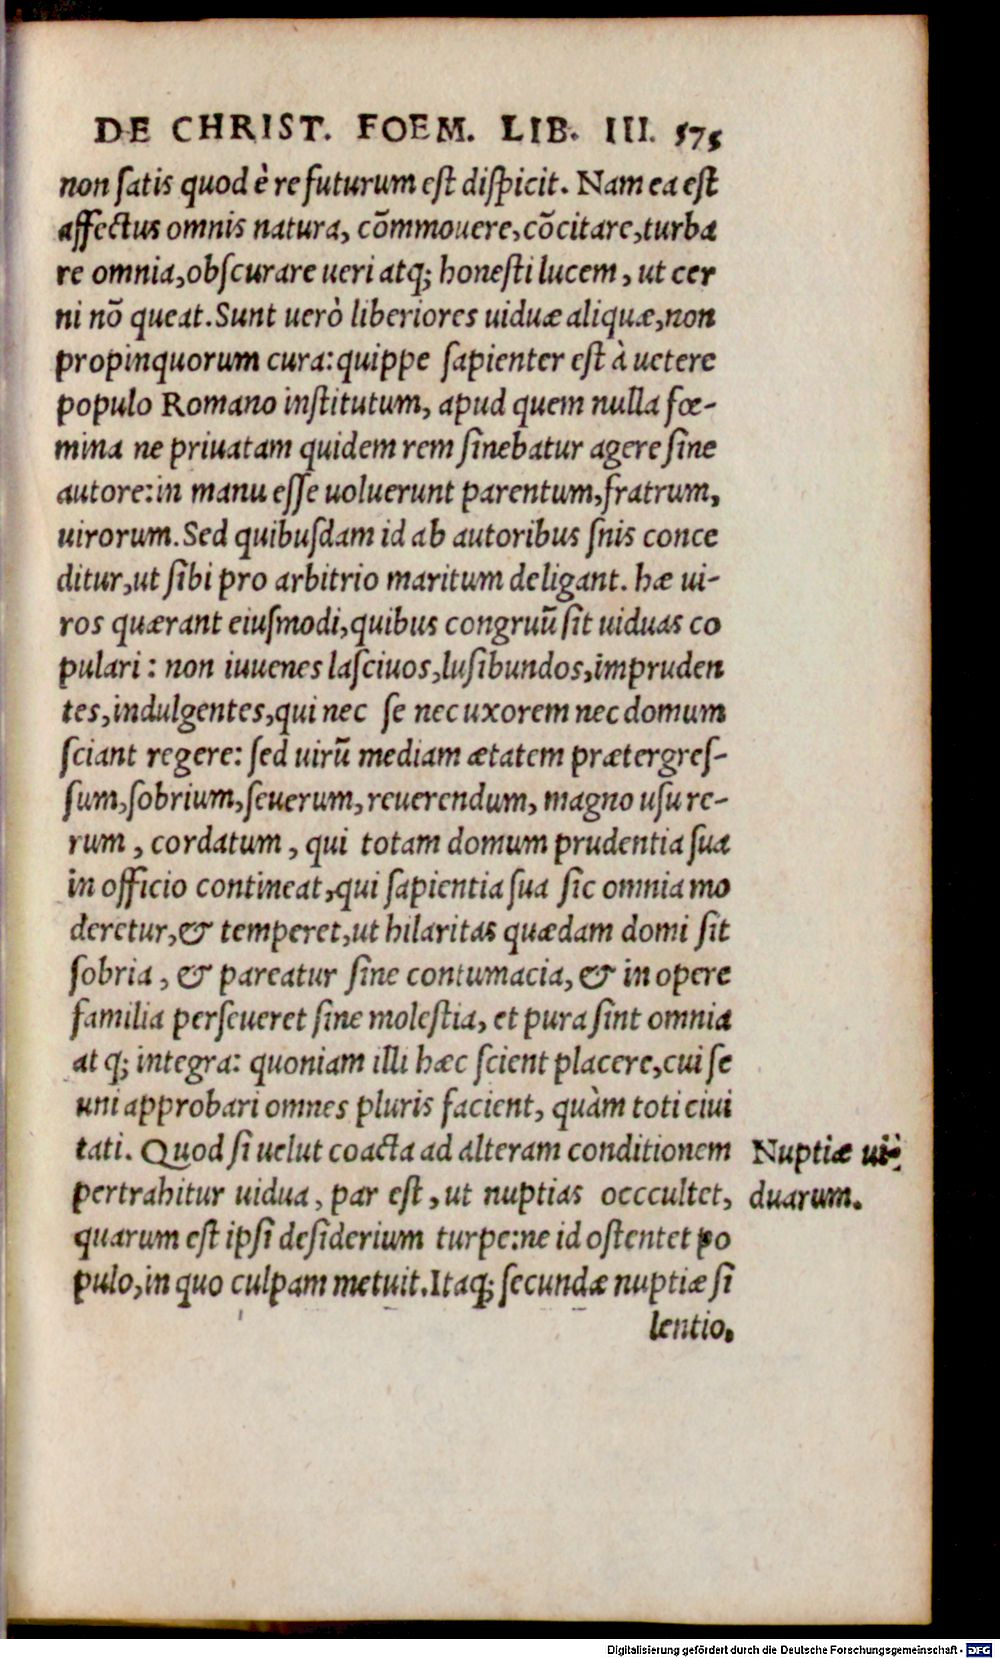 DE CHRIST. FOEM. LIB. III. 575
non ſatis quod è re futurum eſt diſpicit. Nam ea eſt
affectus omnis natura, cõmmouere, cõcitare, turba
re omnia, obſcurare ueri atq; honeſti lucem, ut cer
ni nõ queat. Sunt uerò liberiores uiduæ aliquæ, non
propinquorum cura: quippe ſapienter eſt à uetere
populo Romano inſtitutum, apud quem nulla fœ-
mina ne priuatam quidem rem ſinebatur agere ſine
autore: in manu eſſe uoluerunt parentum, fratrum,
uirorum. Sed quibuſdam id ab autoribus ſnis conce
ditur, ut ſibi pro arbitrio maritum deligant. hæ ui-
ros quærant eiuſmodi, quibus congruũ ſit uiduas co
pulari: non iuuenes laſciuos, luſibundos, impruden
tes, indulgentes, qui nec ſe nec uxorem nec domum
ſciant regere: ſed uirũ mediam ætatem prætergreſ-
ſum, ſobrium, ſeuerum, reuerendum, magno uſu re-
rum, cordatum, qui totam domum prudentia ſua
in officio contineat, qui ſapientia ſua ſic omnia mo
deretur, & temperet, ut hilaritas quædam domi ſit
ſobria, & pareatur ſine contumacia, & in opere
familia perſeueret ſine moleſtia, et pura ſint omnia
at q; integra: quoniam illi hæc ſcient placere, cui ſe
uni approbari omnes pluris facient, quàm toti ciui
tati. Quod ſi uelut coacta ad alteram conditionem
pertrahitur uidua, par eſt, ut nuptias occcultet,
quarum eſt ipſi deſiderium turpe: ne id oſtentet po
pulo, in quo culpam metuit. Itaq; ſecundæ nuptiæ ſi
lentio.
Nuptiæ ui-
duarum.
Digitalisierung gefördert durch die Deutsche Forschungsgemeinschaft - DFG